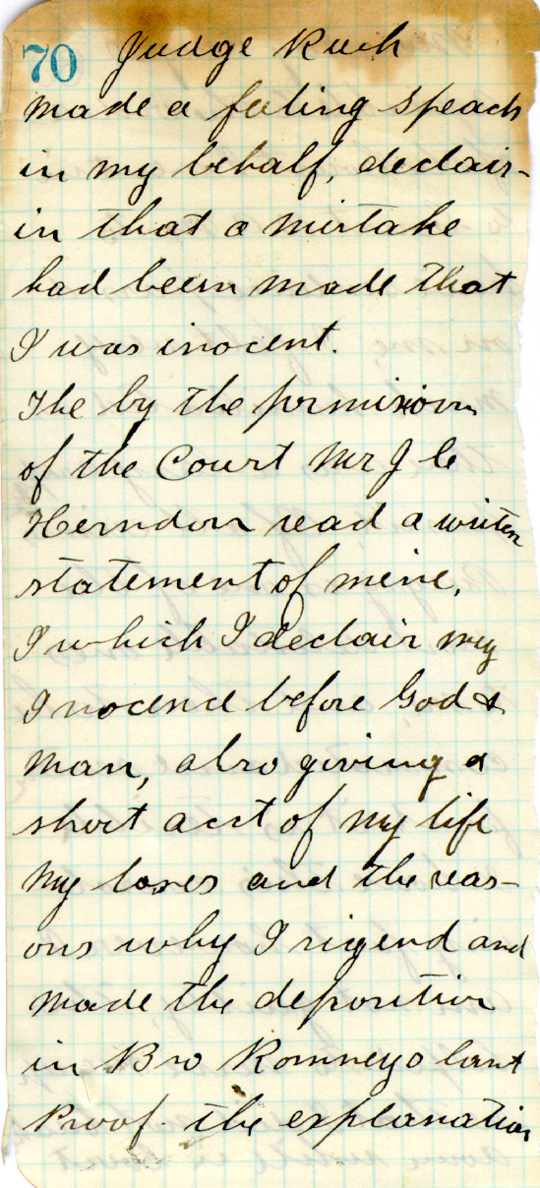 70 Judge Ruch
made a feeling speach
in my behalf, declair-
in that a mistake
had been made that
I was inocent.
The by the permission
of the Court Mr J C
Herndon read a writen
statement of mine,
I which I declair my
Inocence before God &
man, also giving a
short acct of my life
My loses and the reas-
ons why I sigend and
made the deposition
in Bro Romneys land
Proof. the explanation